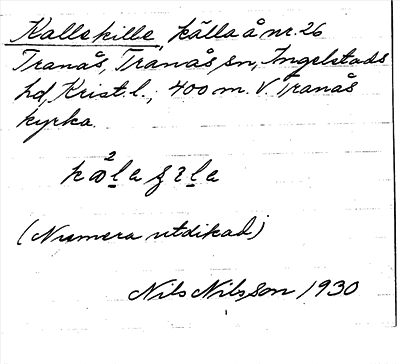 Kallekille, källa å nr. 26
Tranås, Tranås sn, Ingelstads
hd, Krist. l., 400 m. V. Tranås
kyrka.
(Numera utdikad)
Nils Nilsson 1930